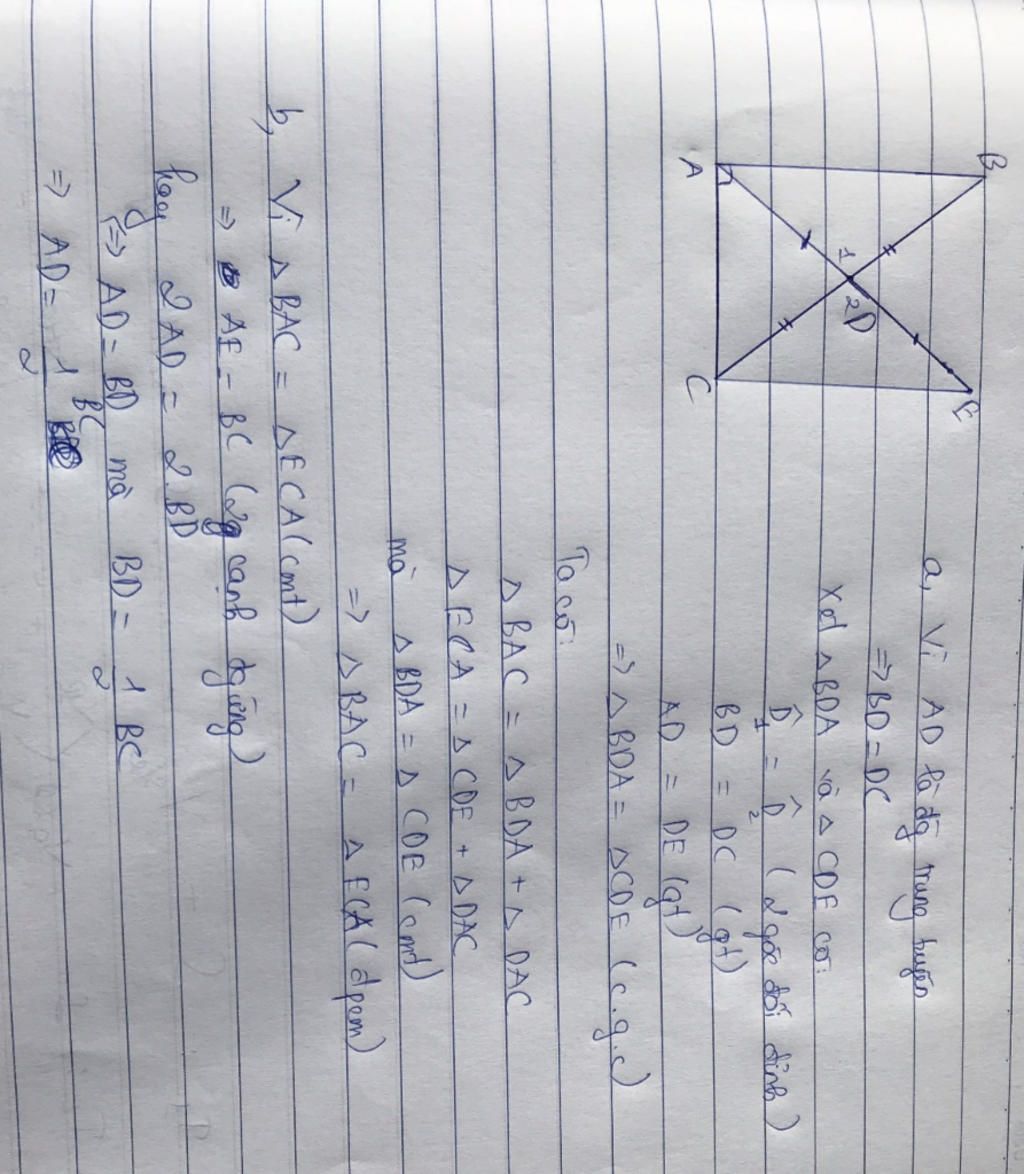 B
E
1
D
2
A
C
a, Vì AD là đg trung tuyến
=> BD = DC
Xét △BDA và △CDE có:
D̂1 = D̂2 (2 góc đối đỉnh)
BD = DC (gt)
AD = DE (gt)
=> △BDA = △CDE (c.g.c)
Ta có:
△BAC = △BDA + △DAC
△ECA = △CDE + △DAC
mà △BDA = △CDE (cmt)
=> △BAC = △ECA (đpcm)
b, Vì △BAC = △ECA (cmt)
=> AE = BC (2 cạnh t/ứng)
hay 2AD = 2.BD
=> AD = BD mà BD = 1/2 BC
=> AD = 1/2 BC